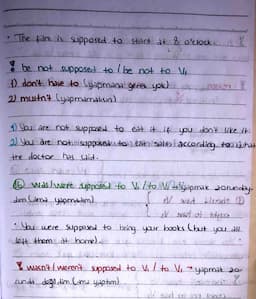 • The film is supposed to start at 8 o'clock.
be not supposed to / be not to V₁
1) don't have to (yapmana gerek yok)
2) mustn't (yapmamalısın)
1) You are not supposed to eat it if you don't like it
2) You are not supposed to eat salt according to what
the doctor has said.
was/were supposed to V₁ / to V₁ → yapmak zorunday-
dım (ama yapmadım)
• You were supposed to bring your books (but you
left them at home).
wasn't/weren't supposed to V₁ / to V₁ → yapmak zo-
runda değildim (ama yaptım)